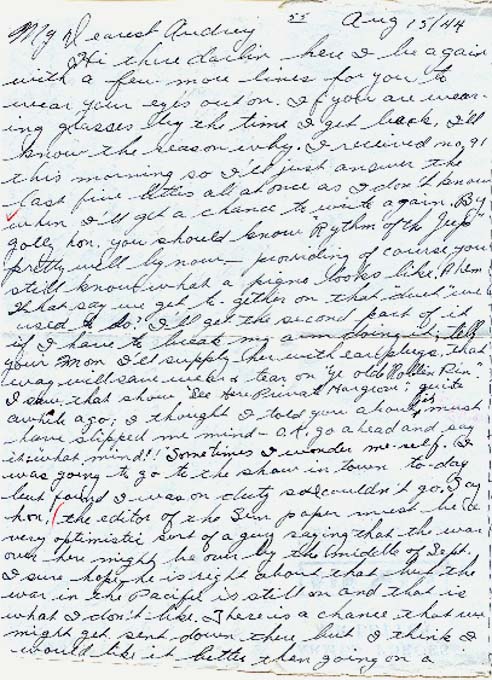 55 Aug 15/44
My Dearest Audrey
Hi there darlin here I be again
with a few more lines for you to
wear your eyes out on. If you are wear-
ing glasses by the time I get back, I'll
know the reason why. I received no, 91
this morning so I'll just answer the
last five letters all at once as I don't know
when I'll get a chance to write again. By
golly hon, you should know "Rythm of the Jeep"
pretty well by now — providing of course you
still know what a piano looks like. Ahem
I say we get to-gether on that "duet" we
used to do; I'll get the second part of it
if I have to break my arm doing it; tell
your Mom I'll supply her with ear plugs, that
way will save wear & tear on "ye old Rollin Pin"
I saw that show "See Here Private Hargrove" quite
awhile ago; I thought I told you about it, must
have slipped me mind — O.K. go ahead and say
it; "what mind!!" Sometimes I wonder me-self. I
was going to go to the show in town to-day
but found I was on duty so couldn't go. Say
hon, the editor of the Sun paper must be a
very optimistic sort of a guy saying that the war
over here might be over by the middle of Sept.
I sure hope he is right about that but the
war in the Pacific is still on and that is
what I don't like. There is a chance that we
might get sent down there but I think I
would like it better than going on a